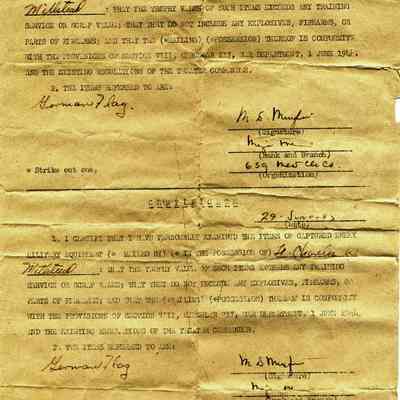 Milstead : THAT THE TROPHY VALUE OF SUCH ITEMS EXCEEDS ANY TRAINING
SERVICE OR SCRAP VALUE; THAT THEY DO NOT INCLUDE ANY EXPLOSIVES, FIREARMS, OR
PARTS OF FIREARMS; AND THAT THE (*MAILING) (*POSSESSION) THEREOF IS CONFORMITY
WITH THE PROVISIONS OF SECTION VIII, CIRCULAR 217, WAR DEPARTMENT, 1 JUNE 1944,
AND THE EXISTING REGULATIONS OF THE THEATER COMMANDER.
2. THE ITEMS REFERRED TO ARE:
German Flag.
M S
(Signature)
(Rank and Branch)
* Strike out one.
659 Med Clr Co.
(Organization)
CERTIFICATE
29 -
(Date)
1. I CERTIFY THAT I HAVE PERSONALLY EXAMINED THE ITEMS OF CAPTURED ENEMY
MILITARY EQUIPMENT (* MAILED BY) (* IN THE POSSESSION OF)
Milstead : THAT THE TROPHY VALUE OF SUCH ITEMS EXCEEDS ANY TRAINING
SERVICE OR SCRAP VALUE; THAT THEY DO NOT INCLUDE ANY EXPLOSIVES, FIREARMS, OR
PARTS OF FIREARMS; AND THAT THE (*MAILING) (*POSSESSION) THEREOF IS CONFORMITY
WITH THE PROVISIONS OF SECTION VIII, CIRCULAR 217, WAR DEPARTMENT, 1 JUNE 1944,
AND THE EXISTING REGULATIONS OF THE THEATER COMMANDER.
2. THE ITEMS REFERRED TO ARE:
German Flag
M S
(Signature)